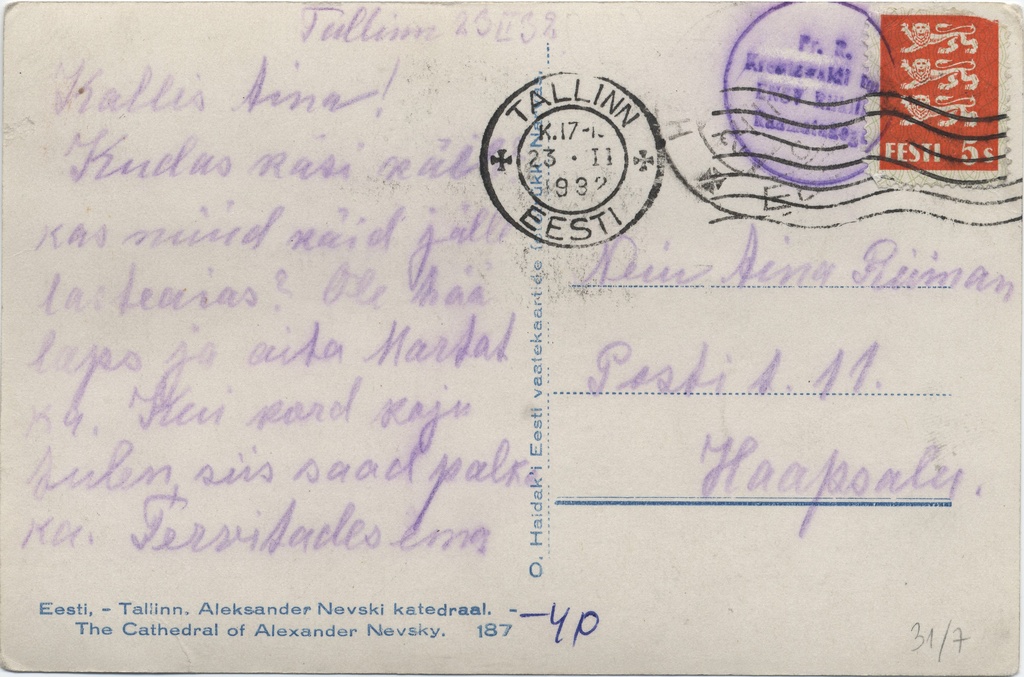 Tallinn 23 II 32
Kallis Aina!
Kudas käsi käib
kas nüüd käid jälle
lasteaias? Ole hää
laps ja aita Martat
ka. Kui kord koju
tulen, siis saad palka
ka. Tervitades ema
TALLINN
K.17-
23 · II
1932
EESTI
Fr. R.
Kreutzwaldi
ENSV
EESTI 5 s
Aina Riiman
Posti t. 11.
Haapsalu.
O. Haidak'i Eesti vaatekaartide
Eesti, - Tallinn, Aleksander Nevski katedraal. -
The Cathedral of Alexander Nevsky. 187
-40
31/7